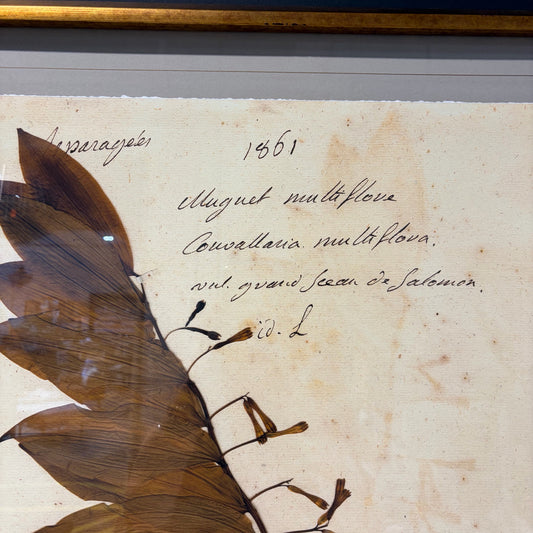 Asparagées
1861
Muguet multiflore
Convallaria multiflora.
vul. grand Sceau de Salomon.
id. L